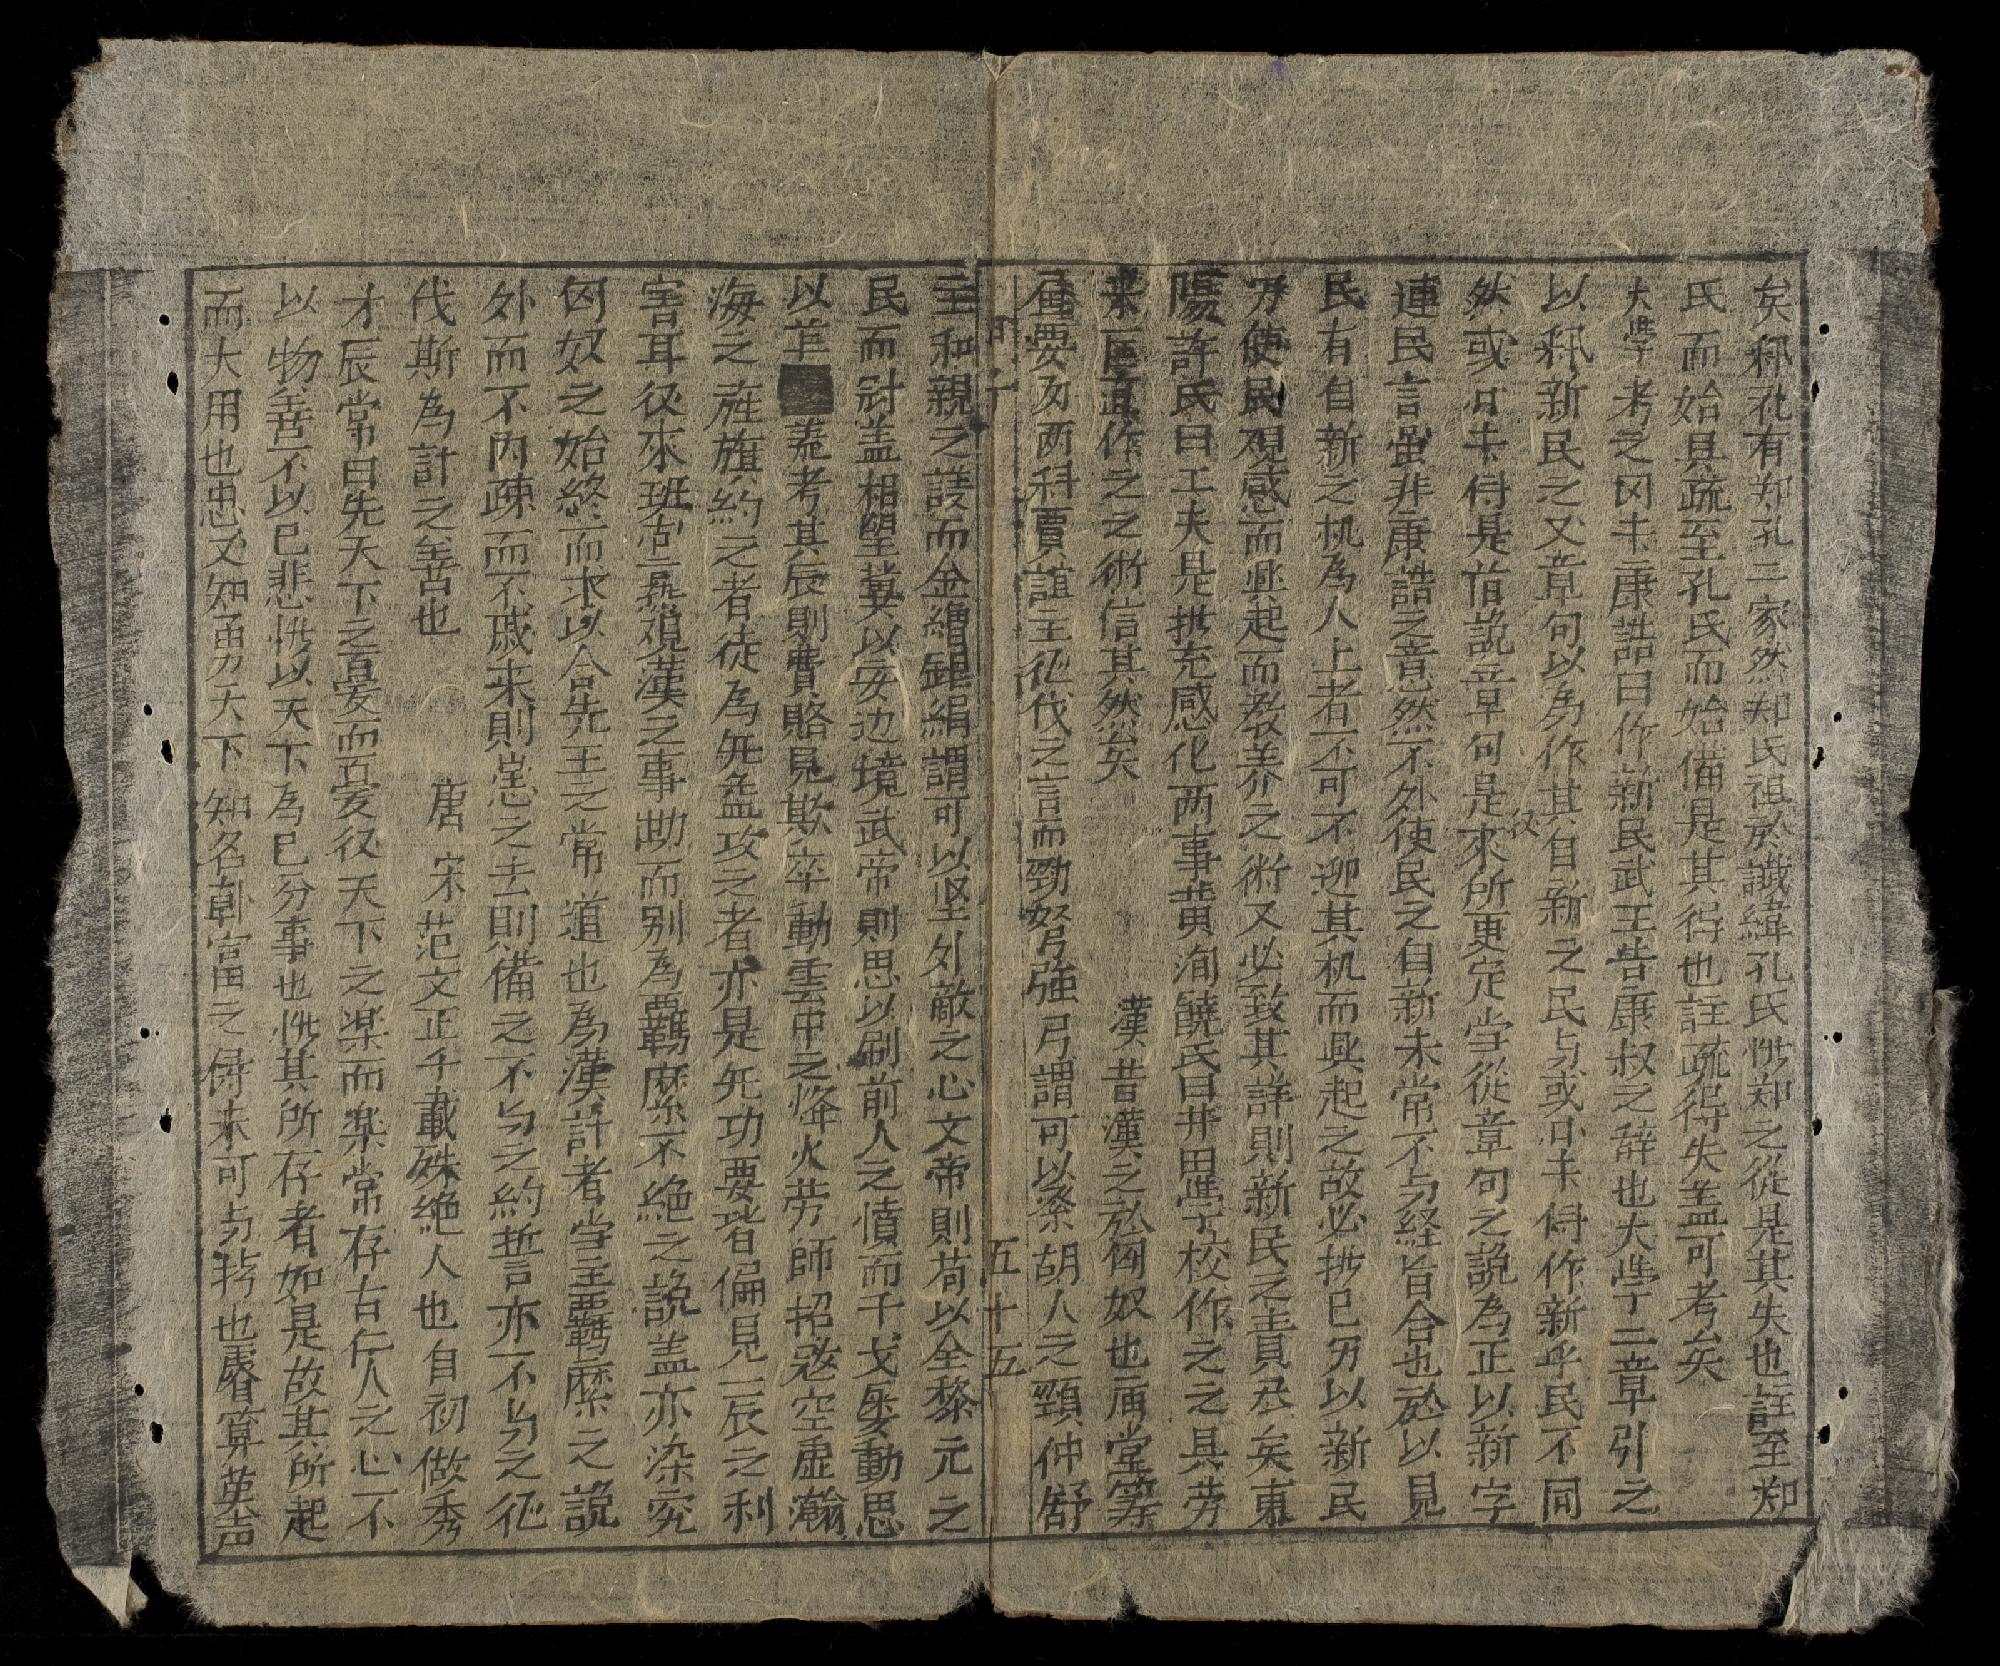 矣称孔有郑孔二家然郑氏祖於讖緯孔氏惟郑之從是其失也註至郑
氏而始具疏至孔氏而始備是其得也註疏得失盖可考矣
大学考之囙未康誥曰作新民武王告康叔之辞也大学二章引之
以称新民之又章句以為作其自新之民与或曰未得作新乎民不同
然或曰未得是前說章句是來所更定当從章句之說為正以新字
連民言虽非康誥之意然不外使民之自新未常不与経旨合也於以見
民有自新之机為人上者不可不迎其机而興起之故必推已另以新民
另使民观感而興起而教养之術又必致其詳則新民之責尽矣東
陽許氏曰工夫是推充感化两事黄洵饒氏曰井田学校作之之具劳
来匡直作之之術信其然矣　漢昔漢之於匈奴也庙堂筹
画要为两科賈誼主征伐之言而勁弩強弓謂可以繫胡人之頸仲舒
五十五
主和親之議而金繒錦絹謂可以坚外敵之心文帝則苟以全黎元之
民而冠盖相望冀以安边境武帝則思以刷前人之憤而干戈屡動思
以羊盖考其辰則費賂見欺卒動雲中之烽火劳師招寇空虛瀚
海之旌旗約之者徒為无益攻之者亦是无功要皆偏見一辰之利
害耳後來班固歷覌漢之事勘而别為羈縻不絶之說盖亦深究
匈奴之始終而求以合先王之常道也為漢計者当主羈縻之說
外而不內疎而不戚来則惩之去則備之不与之約誓亦不与之征
伐斯為計之善也　唐　宋范文正千載殊絶人也自初做秀
才辰常曰先天下之憂而憂後天下之楽而楽常存古仁人之心不
以物喜不以已悲惟以天下為已分事也惟其所存者如是故其所起
而大用也忠文知勇天下知名韩富之儔未可与我也睿算英声